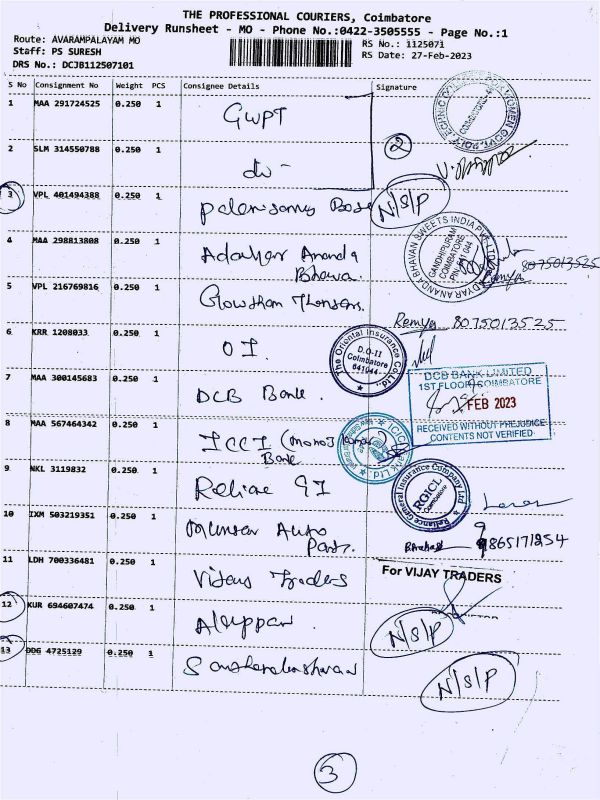 THE PROFESSIONAL COURIERS, Coimbatore
Delivery Runsheet - MO - Phone No.:0422-3505555 - Page No.:1
Route: AVARAMPALAYAM MO
Staff: PS SURESH
DRS No.: DCJB112507101
RS No.: 1125071
RS Date: 27-Feb-2023
S No Consignment No Weight PCS Consignee Details Signature
1 MAA 291724525 0.250 1 GWPT
2 SLM 314550788 0.250 1 do - 2
3 VPL 401494388 0.250 1 N/S/P
ADYAR ANANDA BHAVAN SWEETS INDIA PVT. LTD
GANDHIPURAM
COIMBATORE
PIN-641 044
4 MAA 298813808 0.250 1 Adahar Ananda
Bhava. Remya 8075013525
5 VPL 216769816 0.250 1 Gowtham
Remya 8075013525
6 KRR 1208033 0.250 1 O I.
The Oriental Insurance Co Ltd
D.O-II
Coimbatore
641044
7 MAA 300145683 0.250 1 DCB Bank.
DCB BANK LIMITED
1ST FLOOR COIMBATORE
FEB 2023
RECEIVED WITHOUT PREJUDICE
CONTENTS NOT VERIFIED
8 MAA 567464342 0.250 1 ICCI
Bank
ICICI Bank Ltd
9 NKL 3119832 0.250 1 Reliae GI
Reliance General Insurance Company Ltd
RGICL
Coimbatore
10 IXM 503219351 0.250 1 Munser Auto
Part. 9865171254
11 LDH 700336481 0.250 1 Vijay Traders
For VIJAY TRADERS
12 KUR 694607474 0.250 1 Aleppan N/S/P
13 DDG 4725129 0.250 1 N/S/P
3